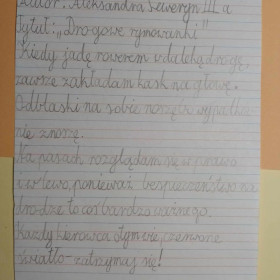 Autor: Aleksandra Seweryn III a
Tytuł: „Drogowe rymowanki"
Kiedy jadę rowerem w daleką drogę,
zawsze zakładam kask na głowę.
Odblaski na sobie noszę
nie znoszę.
Na pasach rozglądam się w prawo
i w lewo, ponieważ bezpieczeństwo na
drodze to coś bardzo ważnego.
Każdy kierowca o tym wie, czerwone
światło-zatrzymaj się!